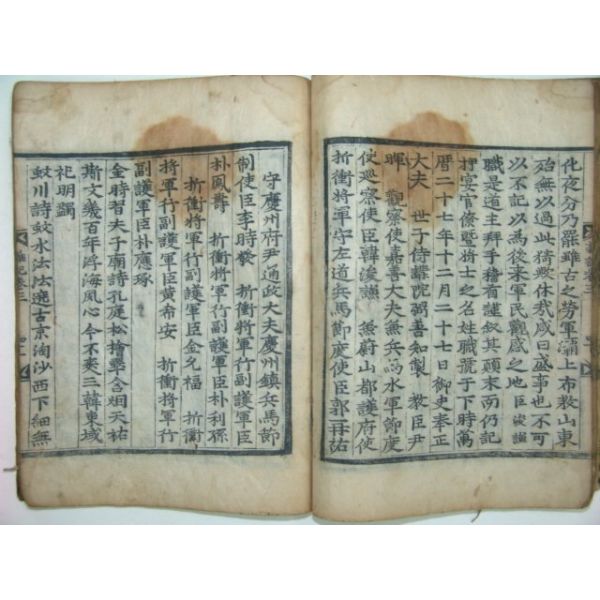 化夜分乃罷雖古之勞軍灞上布敎山東
殆無以過此猗歟休哉咸曰盛事也不可
以不記以爲後來軍民觀感之地臣
職是道主拜手稽首謹叙其顚末而仍記
押宴官僚曁將士之名姓職號于下時萬
曆二十七年十二月二十七日御史奉正
大夫 世子侍講院弼善知製 敎臣尹
暉 觀察使嘉善大夫兼兵馬水軍節度
使巡察使臣韓浚謙 兼蔚山都護府使
折衝將軍守左道兵馬節度使臣郭再祐
守慶州府尹通政大夫慶州鎭兵馬節
制使臣李時發 折衝將軍行副護軍臣
朴鳳壽 折衝將軍行副護軍臣朴利孫
折衝將軍行副護軍臣金允福 折衝
將軍行副護軍臣黃希安 折衝將軍行
副護軍臣朴應琢
金時習夫子廟詩孔庭松檜擧含烟天祐
斯文幾百年浮海風心今不爽三韓東域
祀明蠲
蚊川詩蚊水法法遶古京淘沙西下細無
雜記卷三